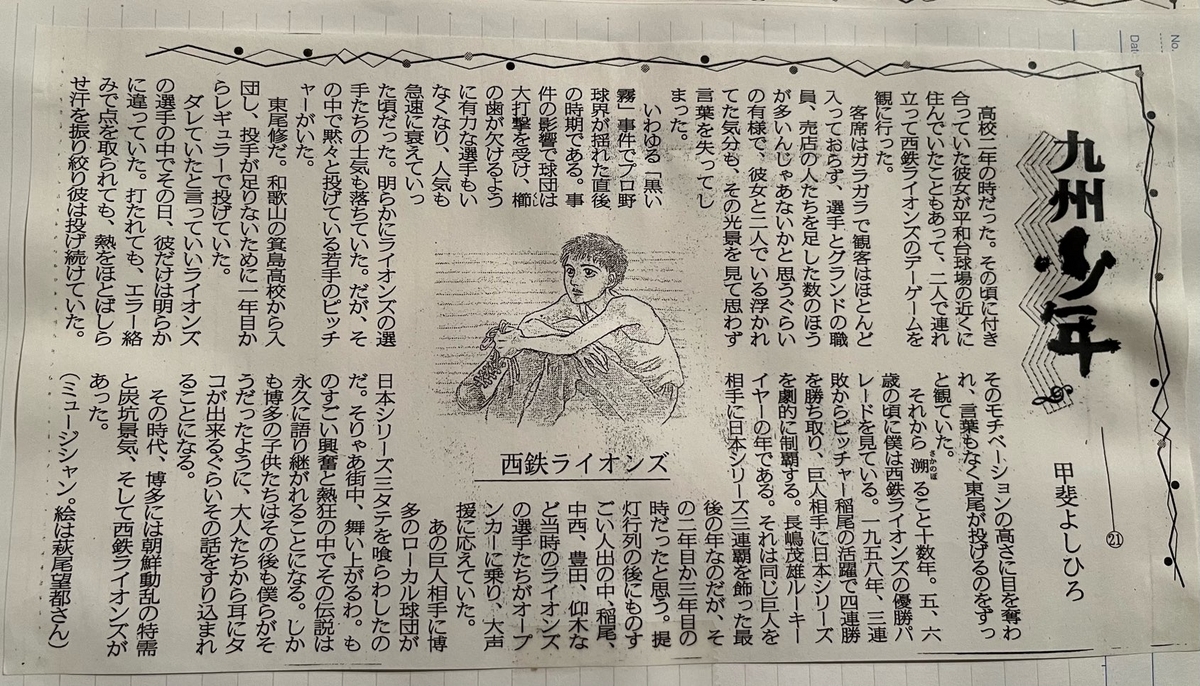 No.
Date
九州少年
甲斐よしひろ
㉑
高校二年の時だった。その頃に付き
合っていた彼女が平和台球場の近くに
住んでいたこともあって、二人で連れ
立って西鉄ライオンズのデーゲームを
観に行った。
客席はガラガラで観客はほとんど
入っておらず、選手とグランドの職
員、売店の人たちを足した数のほう
が多いんじゃあないかと思うぐらい
の有様で、彼女と二人でいる浮かれ
てた気分も、その光景を見て思わず
言葉を失ってし
まった。
いわゆる「黒い
霧」事件でプロ野
球界が揺れた直後
の時期である。事
件の影響で球団は
大打撃を受け、櫛
の歯が欠けるよう
に有力な選手もい
なくなり、人気も
急速に衰えていっ
た頃だった。明らかにライオンズの選
手たちの士気も落ちていた。だが、そ
の中で黙々と投げている若手のピッチ
ャーがいた。
東尾修だ。和歌山の箕島高校から入
団し、投手が足りないために一年目か
らレギュラーで投げていた。
ダレていたと言っていいライオンズ
の選手の中でその日、彼だけは明らか
に違っていた。打たれても、エラー絡
みで点を取られても、熱をほとばしら
せ汗を振り絞り彼は投げ続けていた。
そのモチベーションの高さに目を奪わ
れ、言葉もなく東尾が投げるのをずっ
と観ていた。
それから溯ること十数年。五、六
歳の頃に僕は西鉄ライオンズの優勝パ
レードを見ている。一九五八年、三連
敗からピッチャー稲尾の活躍で四連勝
を勝ち取り、巨人相手に日本シリーズ
を劇的に制覇する。長嶋茂雄ルーキー
イヤーの年である。それは同じ巨人を
相手に日本シリーズ三連覇を飾った最
後の年なのだが、そ
の二年目か三年目の
時だったと思う。提
灯行列の後にものす
ごい人出の中、稲尾、
中西、豊田、仰木な
ど当時のライオンズ
の選手たちがオープ
ンカーに乗り、大声
援に応えていた。
あの巨人相手に博
多のローカル球団が
日本シリーズ三タテを喰らわしたの
だ。そりゃあ街中、舞い上がるわ。も
のすごい興奮と熱狂の中でその伝説は
永久に語り継がれることになる。しか
も博多の子供たちはその後も僕らがそ
うだったように、大人たちから耳にタ
コが出来るぐらいその話をすり込まれ
ることになる。
その時代、博多には朝鮮動乱の特需
と炭坑景気、そして西鉄ライオンズが
あった。
（ミュージシャン。絵は萩尾望都さん）
西鉄ライオンズ